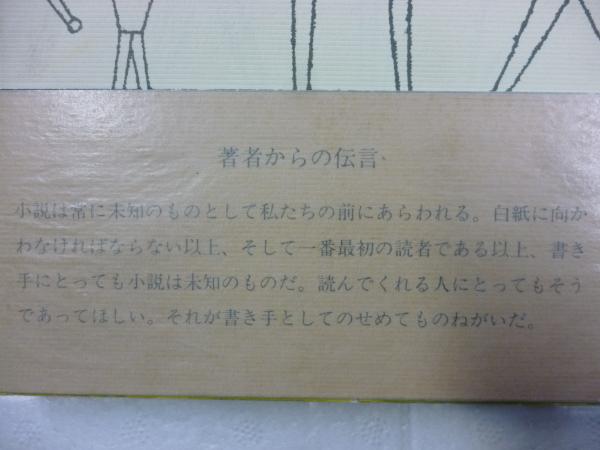 著者からの伝言
小説は常に未知のものとして私たちの前にあらわれる。白紙に向か
わなければならない以上、そして一番最初の読者である以上、書き
手にとっても小説は未知のものだ。読んでくれる人にとってもそう
であってほしい。それが書き手としてのせめてものねがいだ。